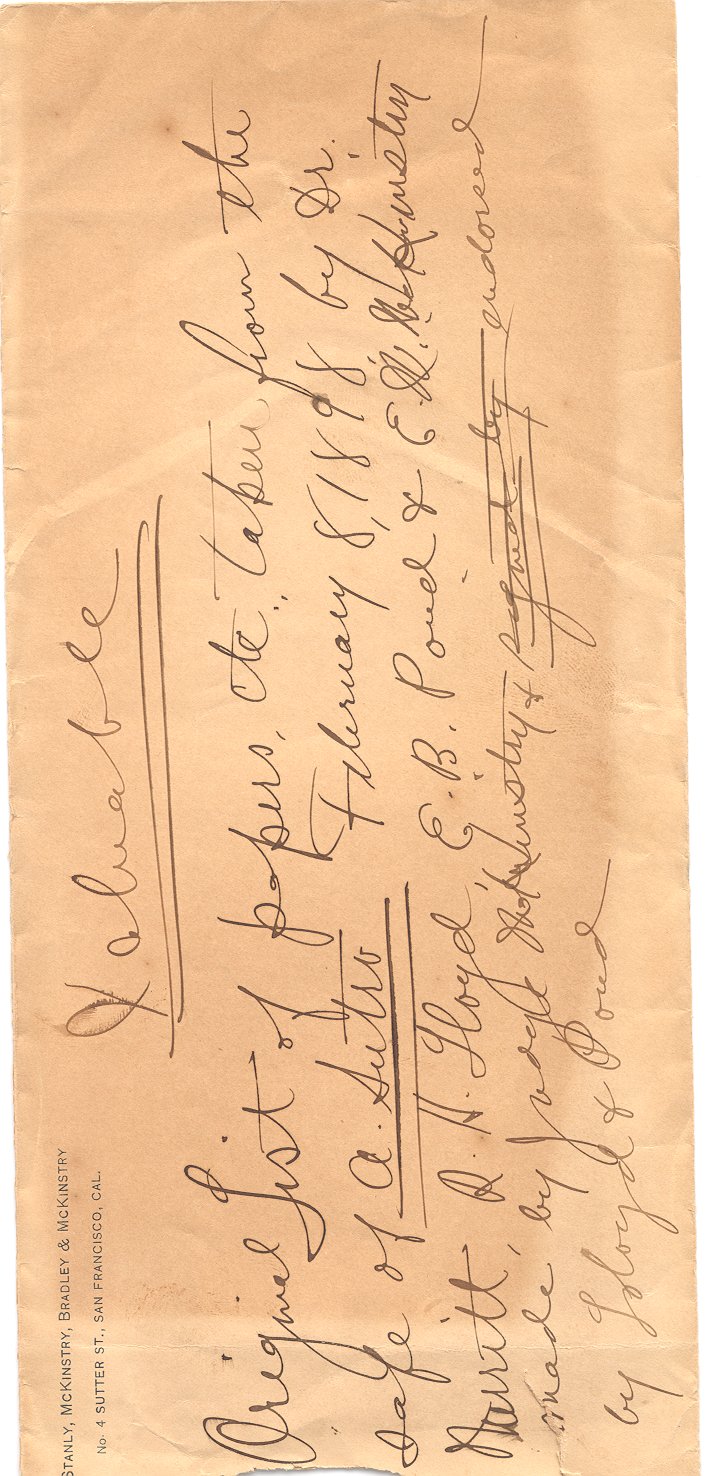 STANLY, MCKINSTRY, BRADLEY & MCKINSTRY
No. 4 SUTTER ST., SAN FRANCISCO, CAL.
Valuable
Original List of papers, etc., taken from the
safe of A. Sutro February 8, 1898, by Dr.
Merritt, R. H. Lloyd, E. B. Pond & E. W. McKinstry
made, by Judge McKinstry & signed by endorsed
by Lloyd & Pond